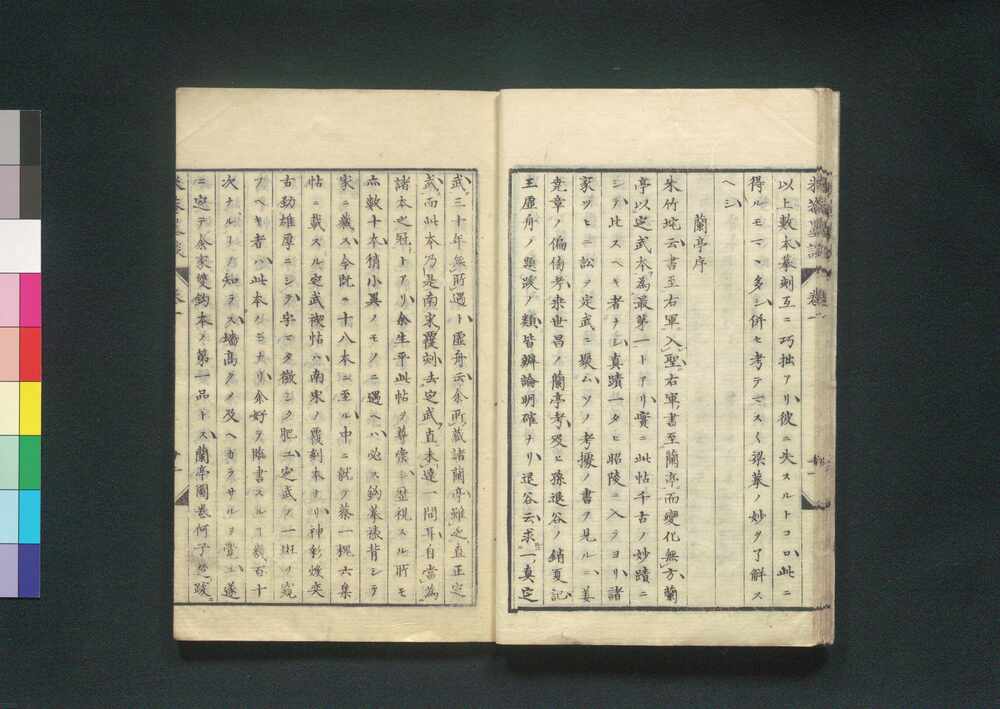 以上數本摹刻互ニ巧拙アリ彼ニ失スルトコロ此ニ
得ルモマヽ多シ併セ考テマスく梁摹ノ妙ヲ了解ス
ヘシ
蘭亭序
朱竹垞云書至右軍入聖右軍書至蘭亭而變化無方蘭
亭以定武本爲最第一トアリ實ニ此帖千古ノ妙蹟ニ
シテ比スヘキ者ナシ真蹟一タヒ昭陵ニ入テヨリ諸
家ツヒニ訟ヲ定武ニ聚ムソノ考據ノ書ヲ見ルニ姜
堯章ノ偏傍考桒世昌ノ蘭亭考及ヒ孫退谷ノ銷夏記
王虚舟ノ題跋ノ類皆辨論明確ナリ退谷云求一真定
武三十年無所遇ト虚舟云余所藏諸蘭亭雖乏直正定
武而此本乃是南宋覆刻去定武直未達一間耳自當為
諸本之冠トアリ余生平此帖ヲ尊崇シ歴視スル所モ
亦數十本稍小異ノモノニ遇ヘハ必ス鈎摹裱背シテ
家ニ藏ス今既ニ十八本ニ至ル中ニ就テ蔡一槐六集
帖ニ載スル定武禊帖ハ南宋ノ覆刻本ナリ神彩煥奕
古勁雄厚ニシテ字マタ微シク肥ユ定武ノ一斑ヲ窺
フヘキ者ハ此本ノミナリ余好テ臨書スルヿ數百十
次ナルヿヲ知ラス墻高クメ及ヘカラサルヲ覺ユ遂
ニ定テ余家雙鈎本ノ第一品トス蘭亭圖巻何子 跋
卷一